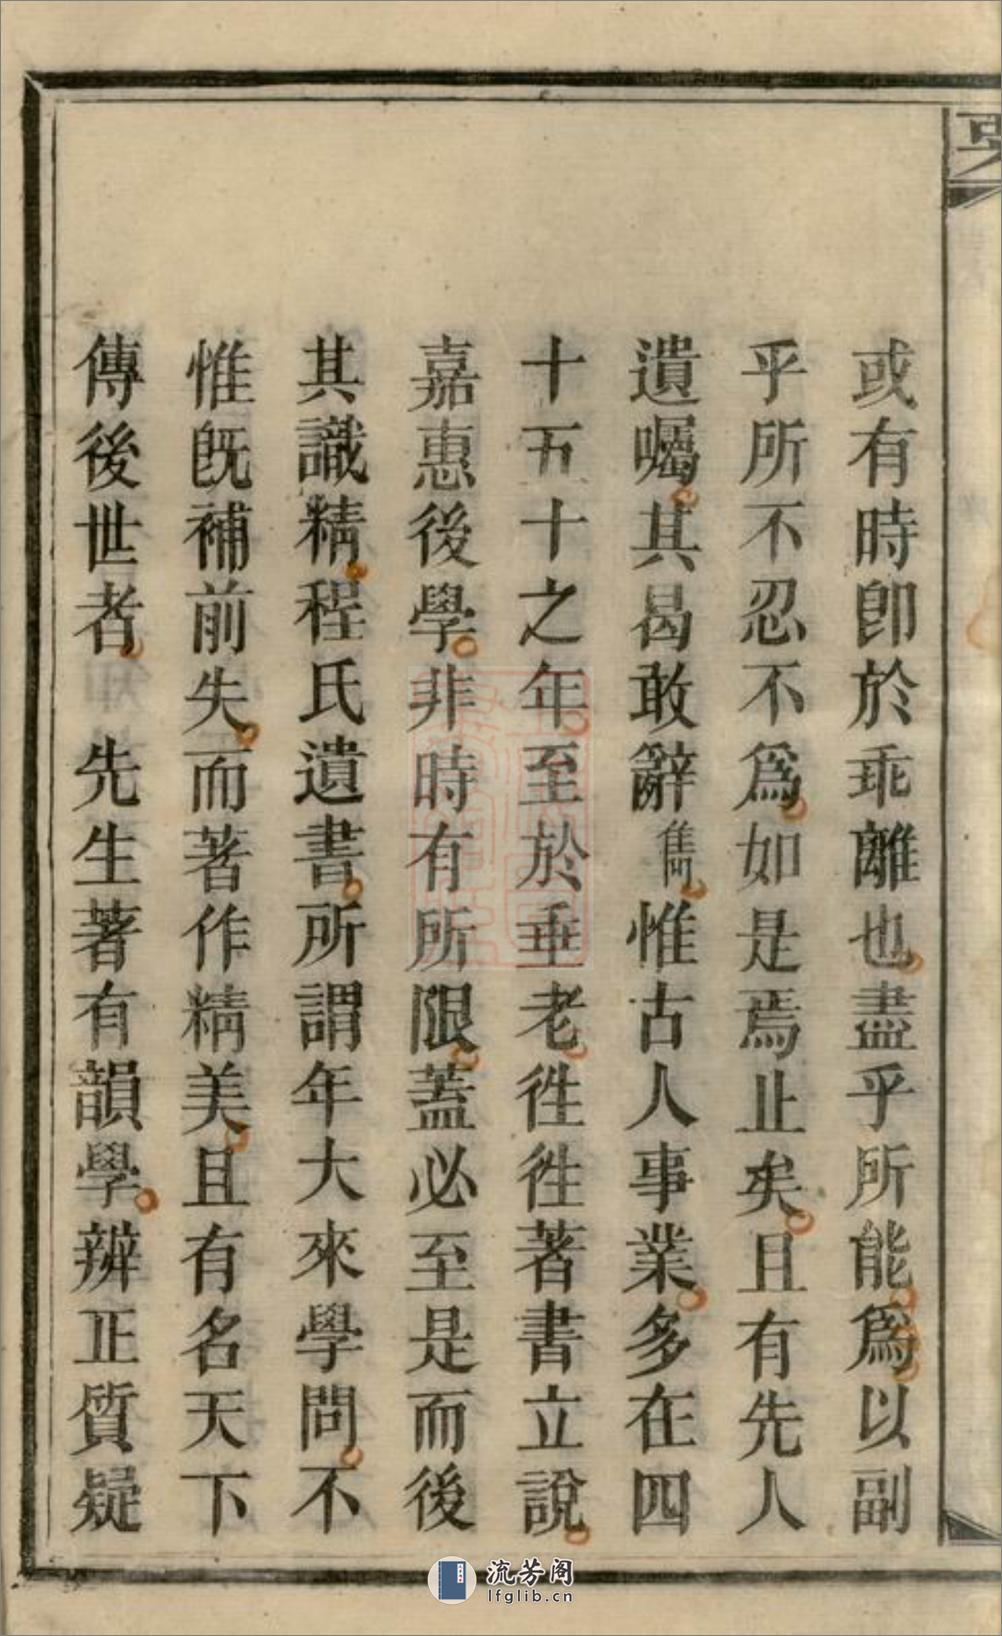 或有時卽於乖離也盡乎所能爲以副
乎所不忍不爲如是焉止矣且有先人
遺囑其曷敢辭雋惟古人事業多在四
十五十之年至於垂老徃徃著書立說
嘉惠後學非時有所限蓋必至是而後
其識精程氏遺書所謂年大來學問不
惟旣補前失而著作精美且有名天下
傳後世者先生著有韻學辨正質疑
流芳阁
lfglib.cn